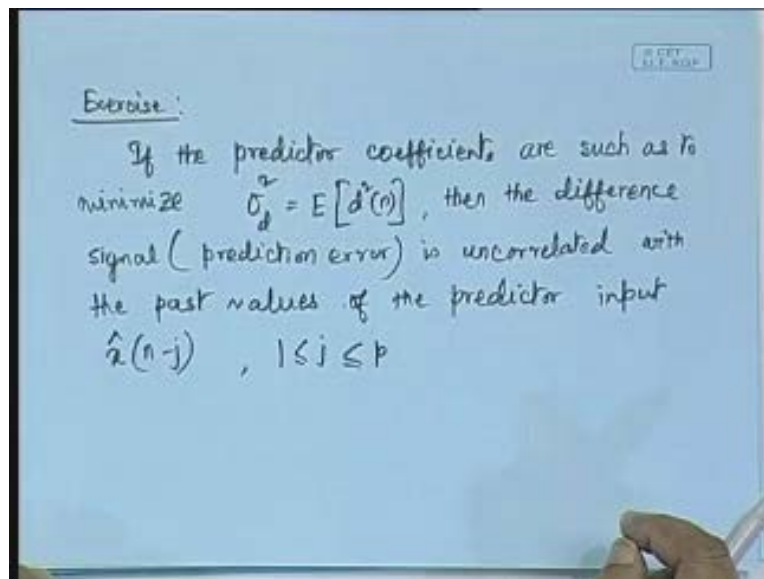 Exercise :
If the predictor coefficients are such as to
minimize σ_d² = E[d²(n)], then the difference
signal ( prediction error) is uncorrelated with
the past values of the predictor input
x̂(n-j) , 1 ≤ j ≤ p